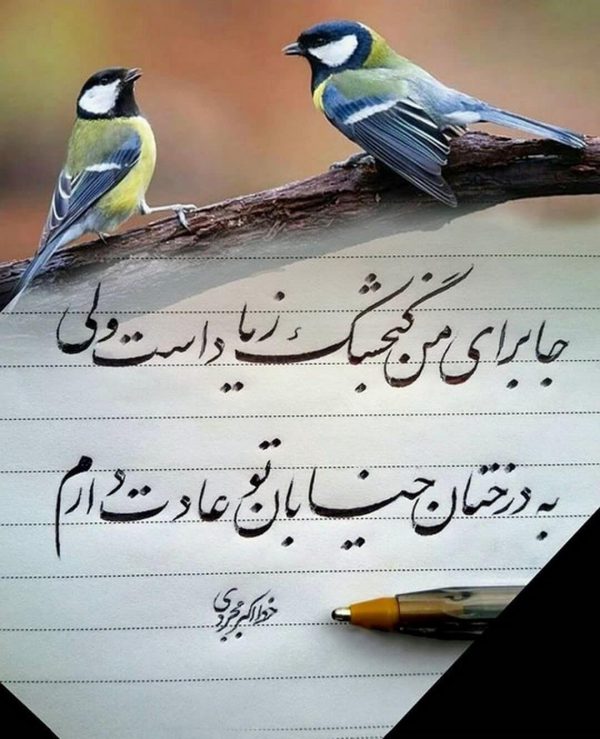 جا برای من گنجشک زیاد است ولی
به درختان خیابان تو عادت دارم
خط اکبر مجردی